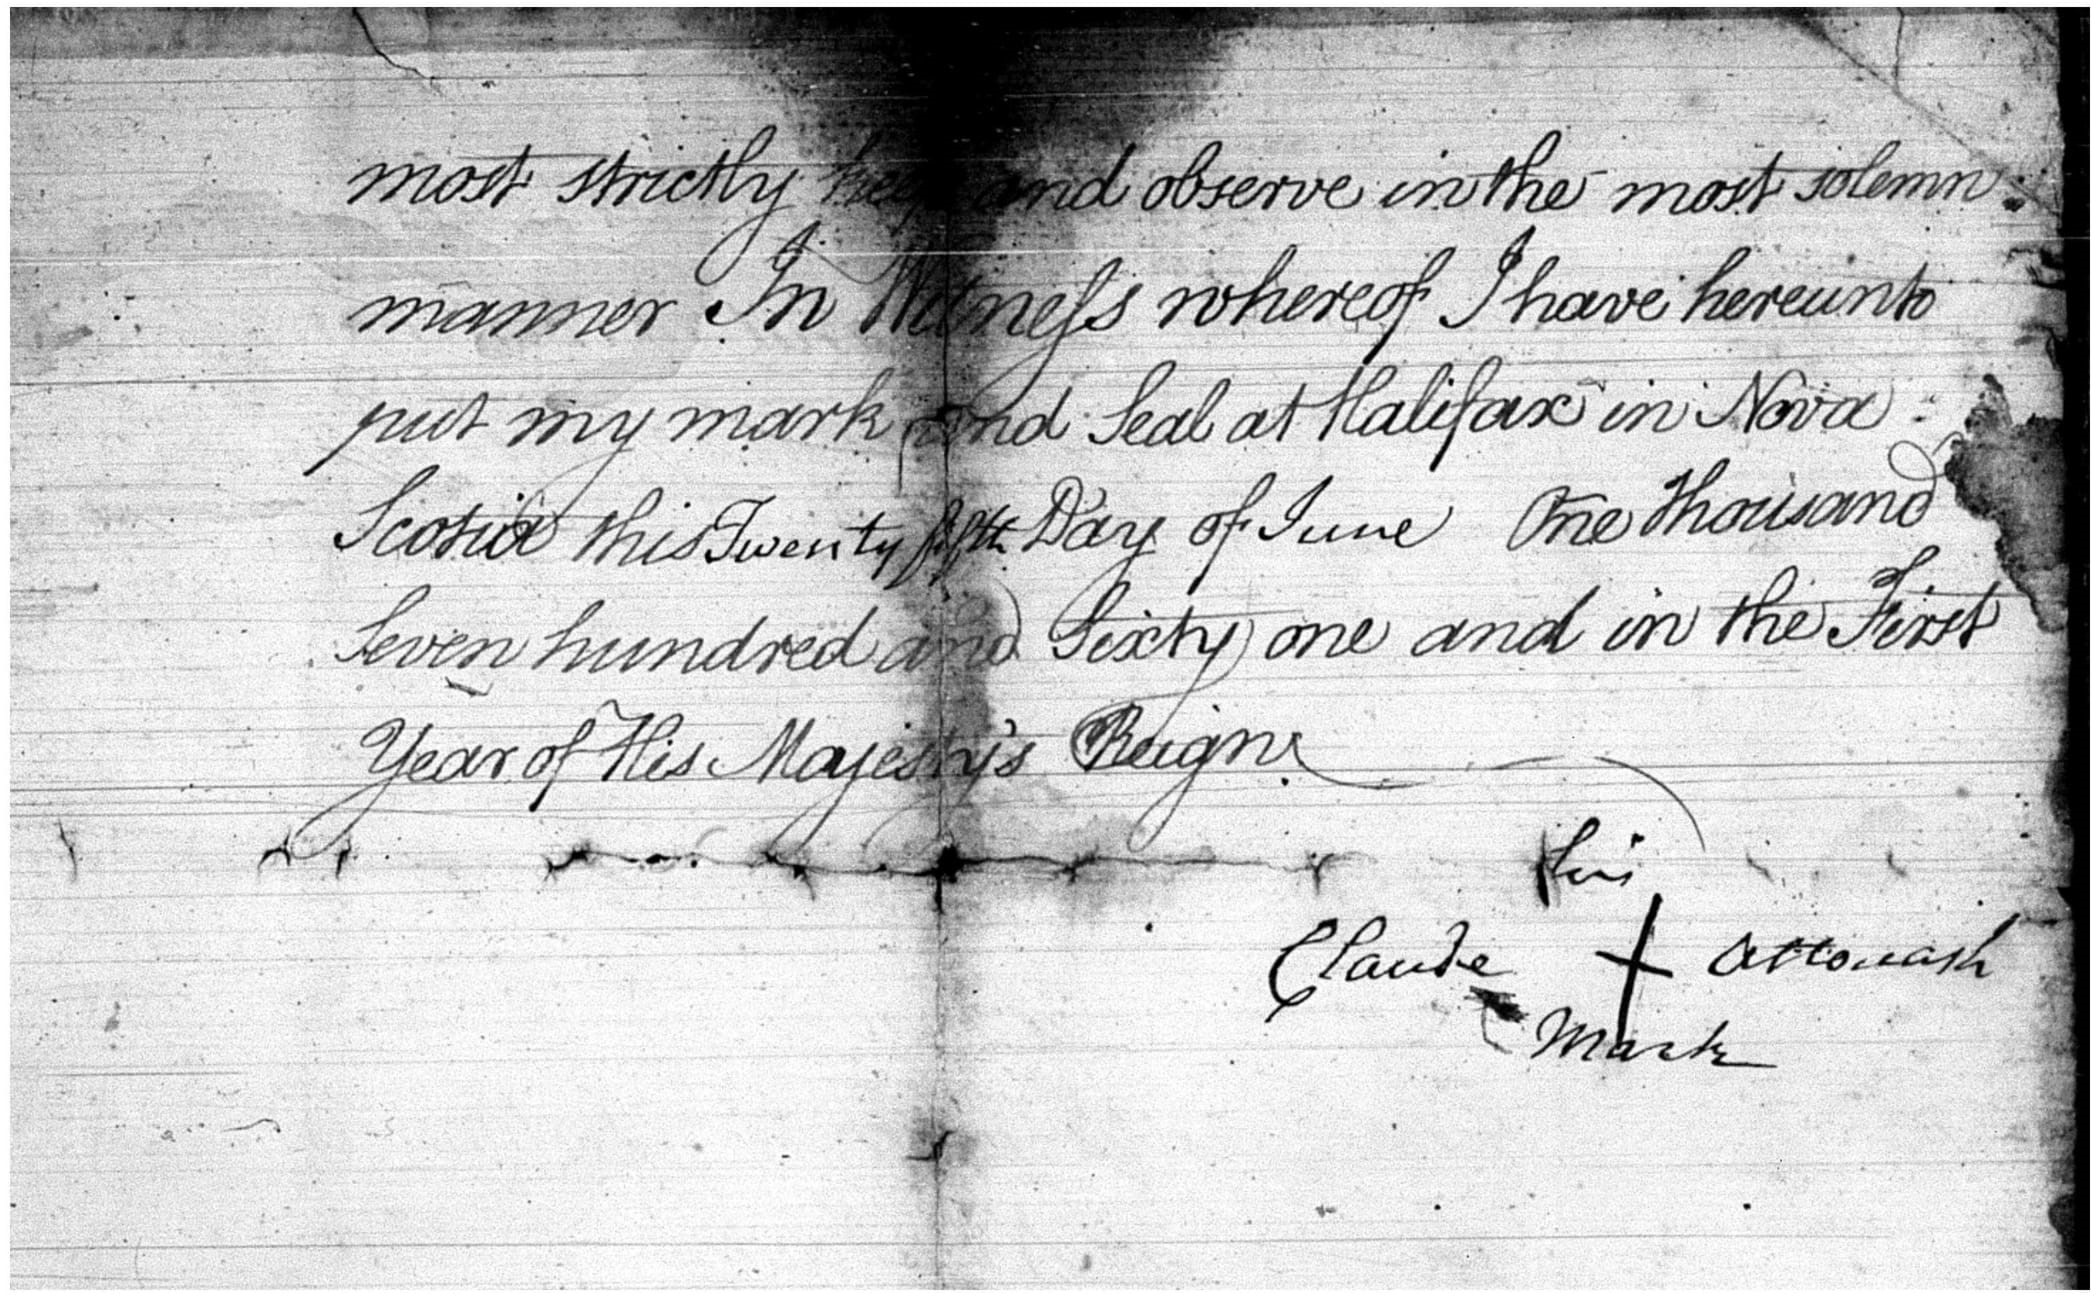 most strictly keep and observe in the most solemn
manner In Witness whereof I have hereunto
put my mark and Seal at Halifax in Nova
Scotia this Twenty fifth Day of June One thousand
Seven hundred and Sixty one and in the First
Year of His Majesty's Reign
his
Claude + Attouash
Mark